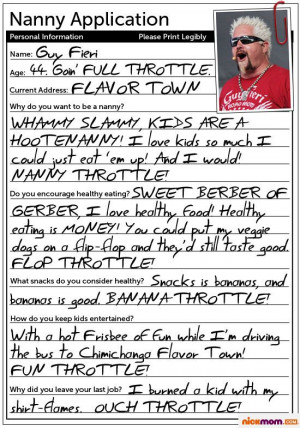 Nanny Application
Personal Information Please Print Legibly
Name: Guy Fieri
Age: 44. 'Goin' FULL THROTTLE.
Current Address: FLAVOR TOWN
Why do you want to be a nanny?
WHAMMY SLAMMY, KIDS ARE A
HOOTENANNY! I love kids so much I
could just eat 'em up! And I would!
NANNY THROTTLE!
Do you encourage healthy eating? SWEET BERBER OF
GERBER, I love healthy food! Healthy
eating is MONEY! You could put my veggie
dogs on a flip-flop and they'd still taste good.
FLOP THROTTLE!
What snacks do you consider healthy? Snacks is bananas, and
bananas is good. BANANA THROTTLE!
How do you keep kids entertained?
With a hot Frisbee of fun while I'm driving
the bus to Chimichanga Flavor Town!
FUN THROTTLE!
Why did you leave your last job? I burned a kid with my
shirt-flames. OUCH THROTTLE!
nickmom.com